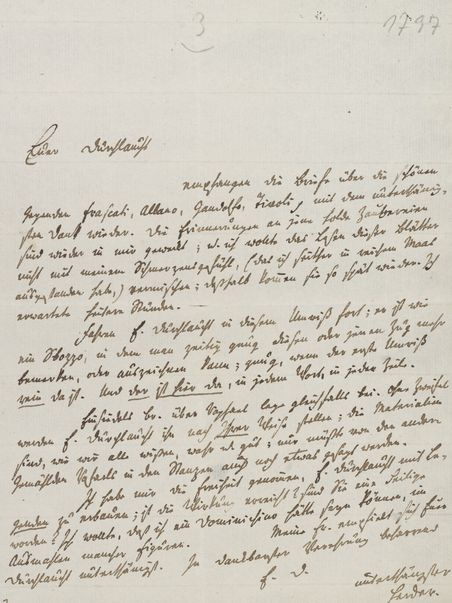 3
1797
Euer Durchlaucht
empfangen die Briefe über die schönen
Gegenden Frascati, Albano, Gandolfo, Tivoli, mit dem unterthänig-
sten Dank wieder. Die Erinnerungen an jene holde Zaubereien
sind wieder in mir geweckt; u. ich wollte das Lesen dieser Blätter
nicht mit meinem Schmerzensgefühl, (das ich seither in reichem Maas
ausgestanden habe,) vermischen; deßhalb kommen sie so spät wieder. Ich
erwartete heitere Stunden.
Fahren E. Durchlaucht in diesem Umriß fort; es ist wie
ein Bozzo, in dem man zeitig gnug diesen oder jenen Zug mehr
bemerken, oder auszeichnen kann; gnug, wenn der erste Umriß
rein da ist. Und der ist hier da, in jedem Wort, in jeder Zeile.
Einsiedels Br. über Raphael lege gleichfalls bei. Ohne Zweifel
werden E. Durchlaucht ihn nach Ihrer Weise stellen; die Materialien
sind, wie wir alle wißen, wahr u. gut; nur müßte von den andern
Gemählden Raphaels in den Stanzen auch noch etwas gesagt werden.
Ich habe mir die Freiheit genommen, E. Durchlaucht mit Le-
genden zu erbauen; ist die Wirkung erreicht? sind Sie eine Heilige
worden? Ich wollte, daß ich ein Dominichino hätte seyn können, im
Ausmahlen mancher Figuren. Meine Fr. empfielt sich Euer
Durchlaucht unterthänigst. In dankbarster Verehrung beharrend
E. D. unterthänigster
Herder.